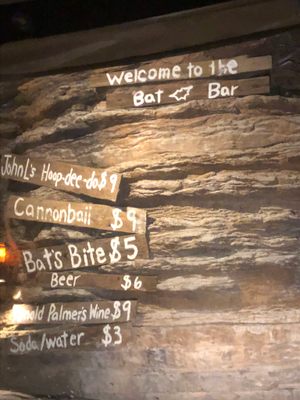 Welcome to the
Bat Bar
John L's Hoop-dee-do $9
Cannonball $9
Bat's Bite $5
Beer $6
nold Palmer's Wine $9
Soda/water $3